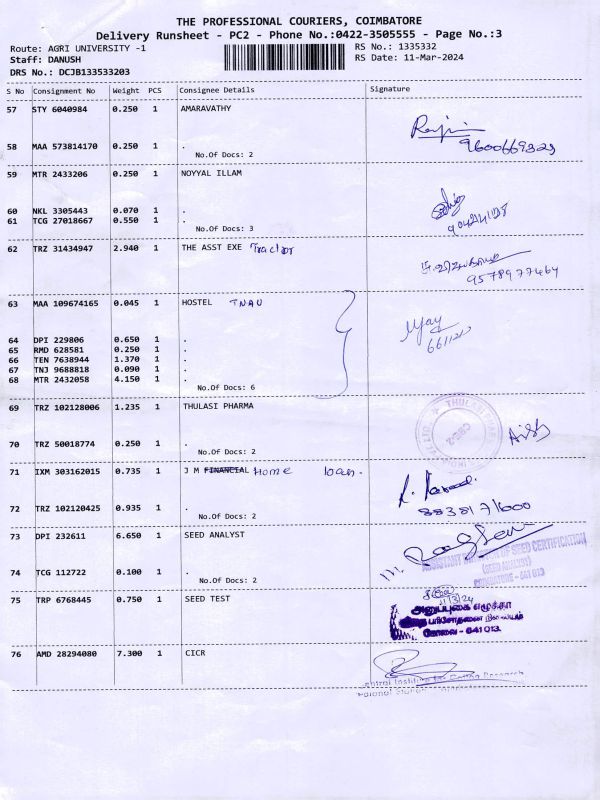 THE PROFESSIONAL COURIERS, COIMBATORE
Delivery Runsheet - PC2 - Phone No.:0422-3505555 - Page No.:3
Route: AGRI UNIVERSITY -1
RS No.: 1335332
Staff: DANUSH
RS Date: 11-Mar-2024
DRS No.: DCJB133533203
S No Consignment No Weight PCS Consignee Details Signature
57 STY 6040984 0.250 1 AMARAVATHY
58 MAA 573814170 0.250 1 .
9600669323
No.Of Docs: 2
59 MTR 2433206 0.250 1 NOYYAL ILLAM
60 NKL 3305443 0.070 1 .
61 TCG 27018667 0.550 1 .
No.Of Docs: 3
62 TRZ 31434947 2.940 1 THE ASST EXE Tractor
9578977464
63 MAA 109674165 0.045 1 HOSTEL TNAU
64 DPI 229806 0.650 1 .
65 RMD 628581 0.250 1 .
66 TEN 7638944 1.370 1 .
67 TNJ 9688818 0.090 1 .
68 MTR 2432058 4.150 1 .
No.Of Docs: 6
69 TRZ 102128006 1.235 1 THULASI PHARMA
70 TRZ 50018774 0.250 1 .
No.Of Docs: 2
71 IXM 303162015 0.735 1 J M FINANCIAL Home loan.
72 TRZ 102120425 0.935 1 .
8838171600
No.Of Docs: 2
73 DPI 232611 6.650 1 SEED ANALYST
OF SEED CERTIFICATION
(SEED ANALYST)
COIMBATORE - 641 013
74 TCG 112722 0.100 1 .
No.Of Docs: 2
75 TRP 6768445 0.750 1 SEED TEST
11/3/24
கோவை - 641 013.
76 AMD 28294080 7.300 1 CICR
Central Institute for Cotton Research